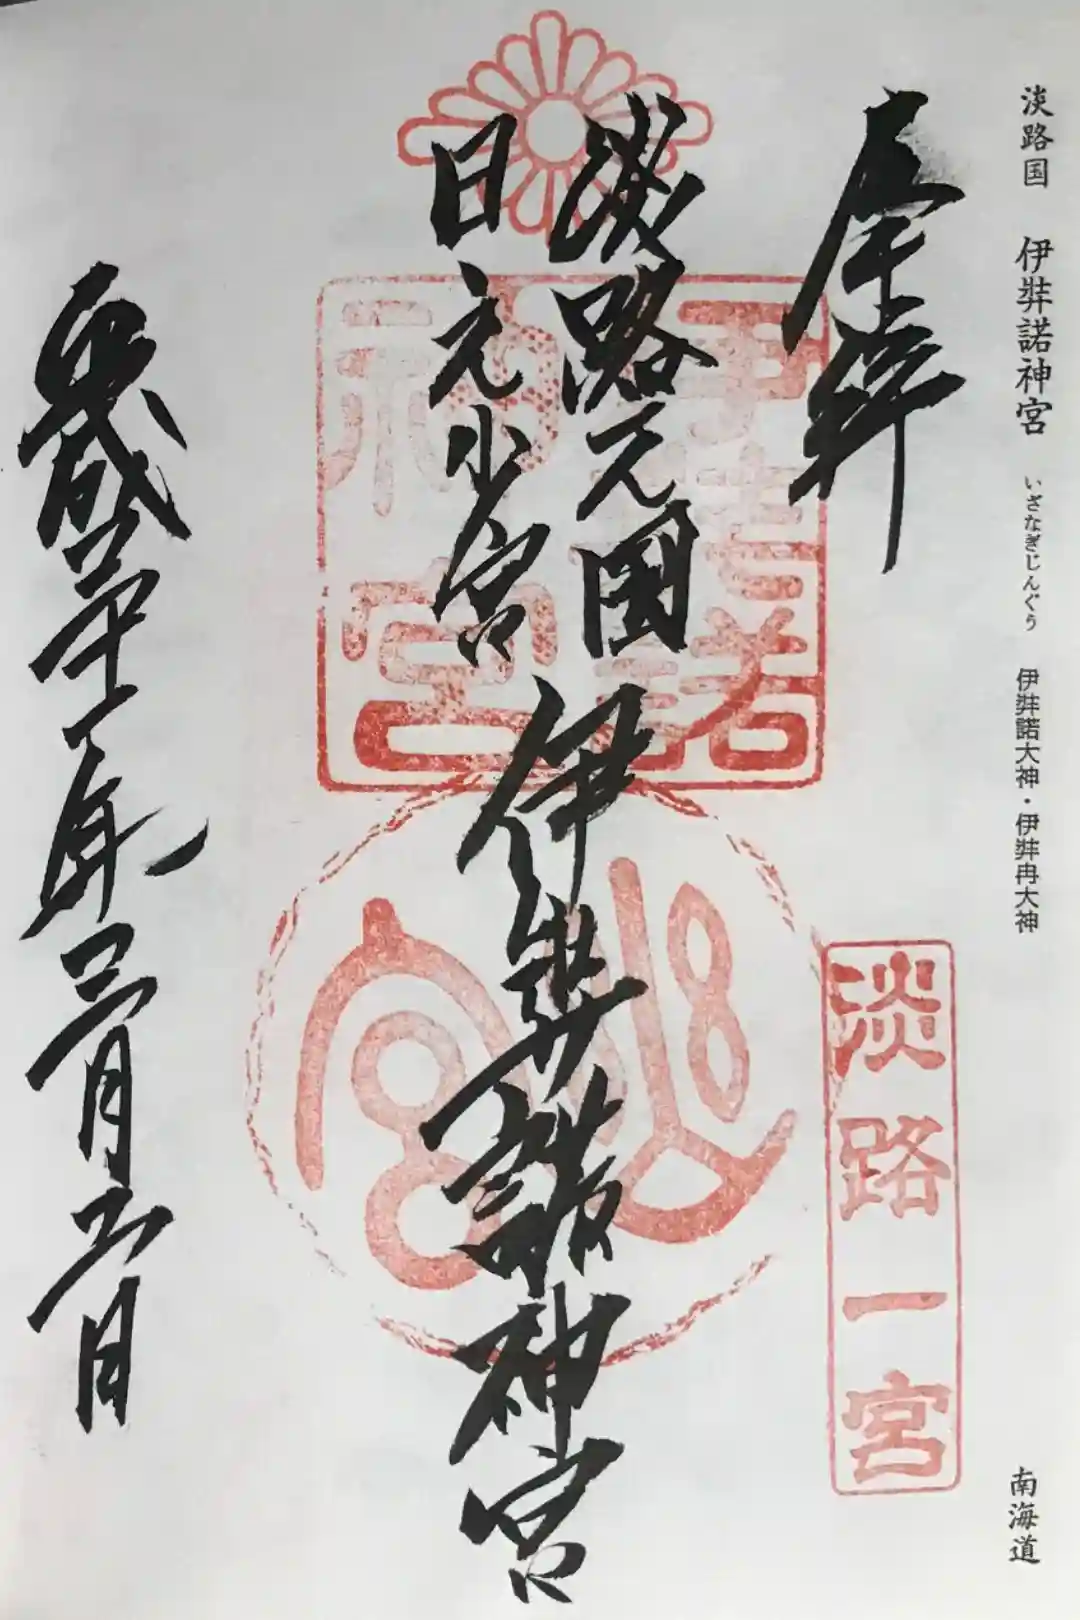 淡路国 伊弉諾神宮 いざなぎじんぐう 伊弉諾大神・伊弉冉大神 南海道
奉拝
淡路一宮
淡路之国
日之少宮
伊弉諾神宮
十一年 月 日